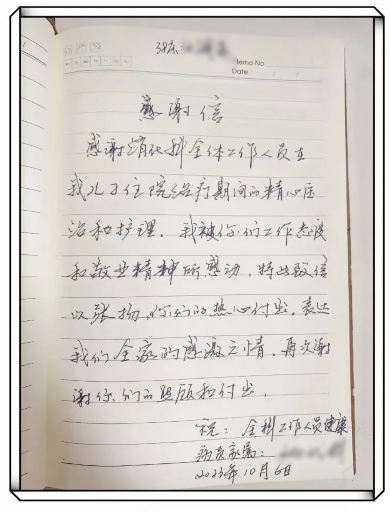 38床
Memo No.
Date / /
感谢信
感谢消化科全体工作人员在
我儿子住院治疗期间的精心医
治和护理，我被你们工作态度
和敬业精神所感动，特此致信
以张扬，你们的热心付出，表达
我们全家的感激之情，再次谢
谢你们的照顾和付出。
祝：全科工作人员健康
病员家属：
2023年10月6日